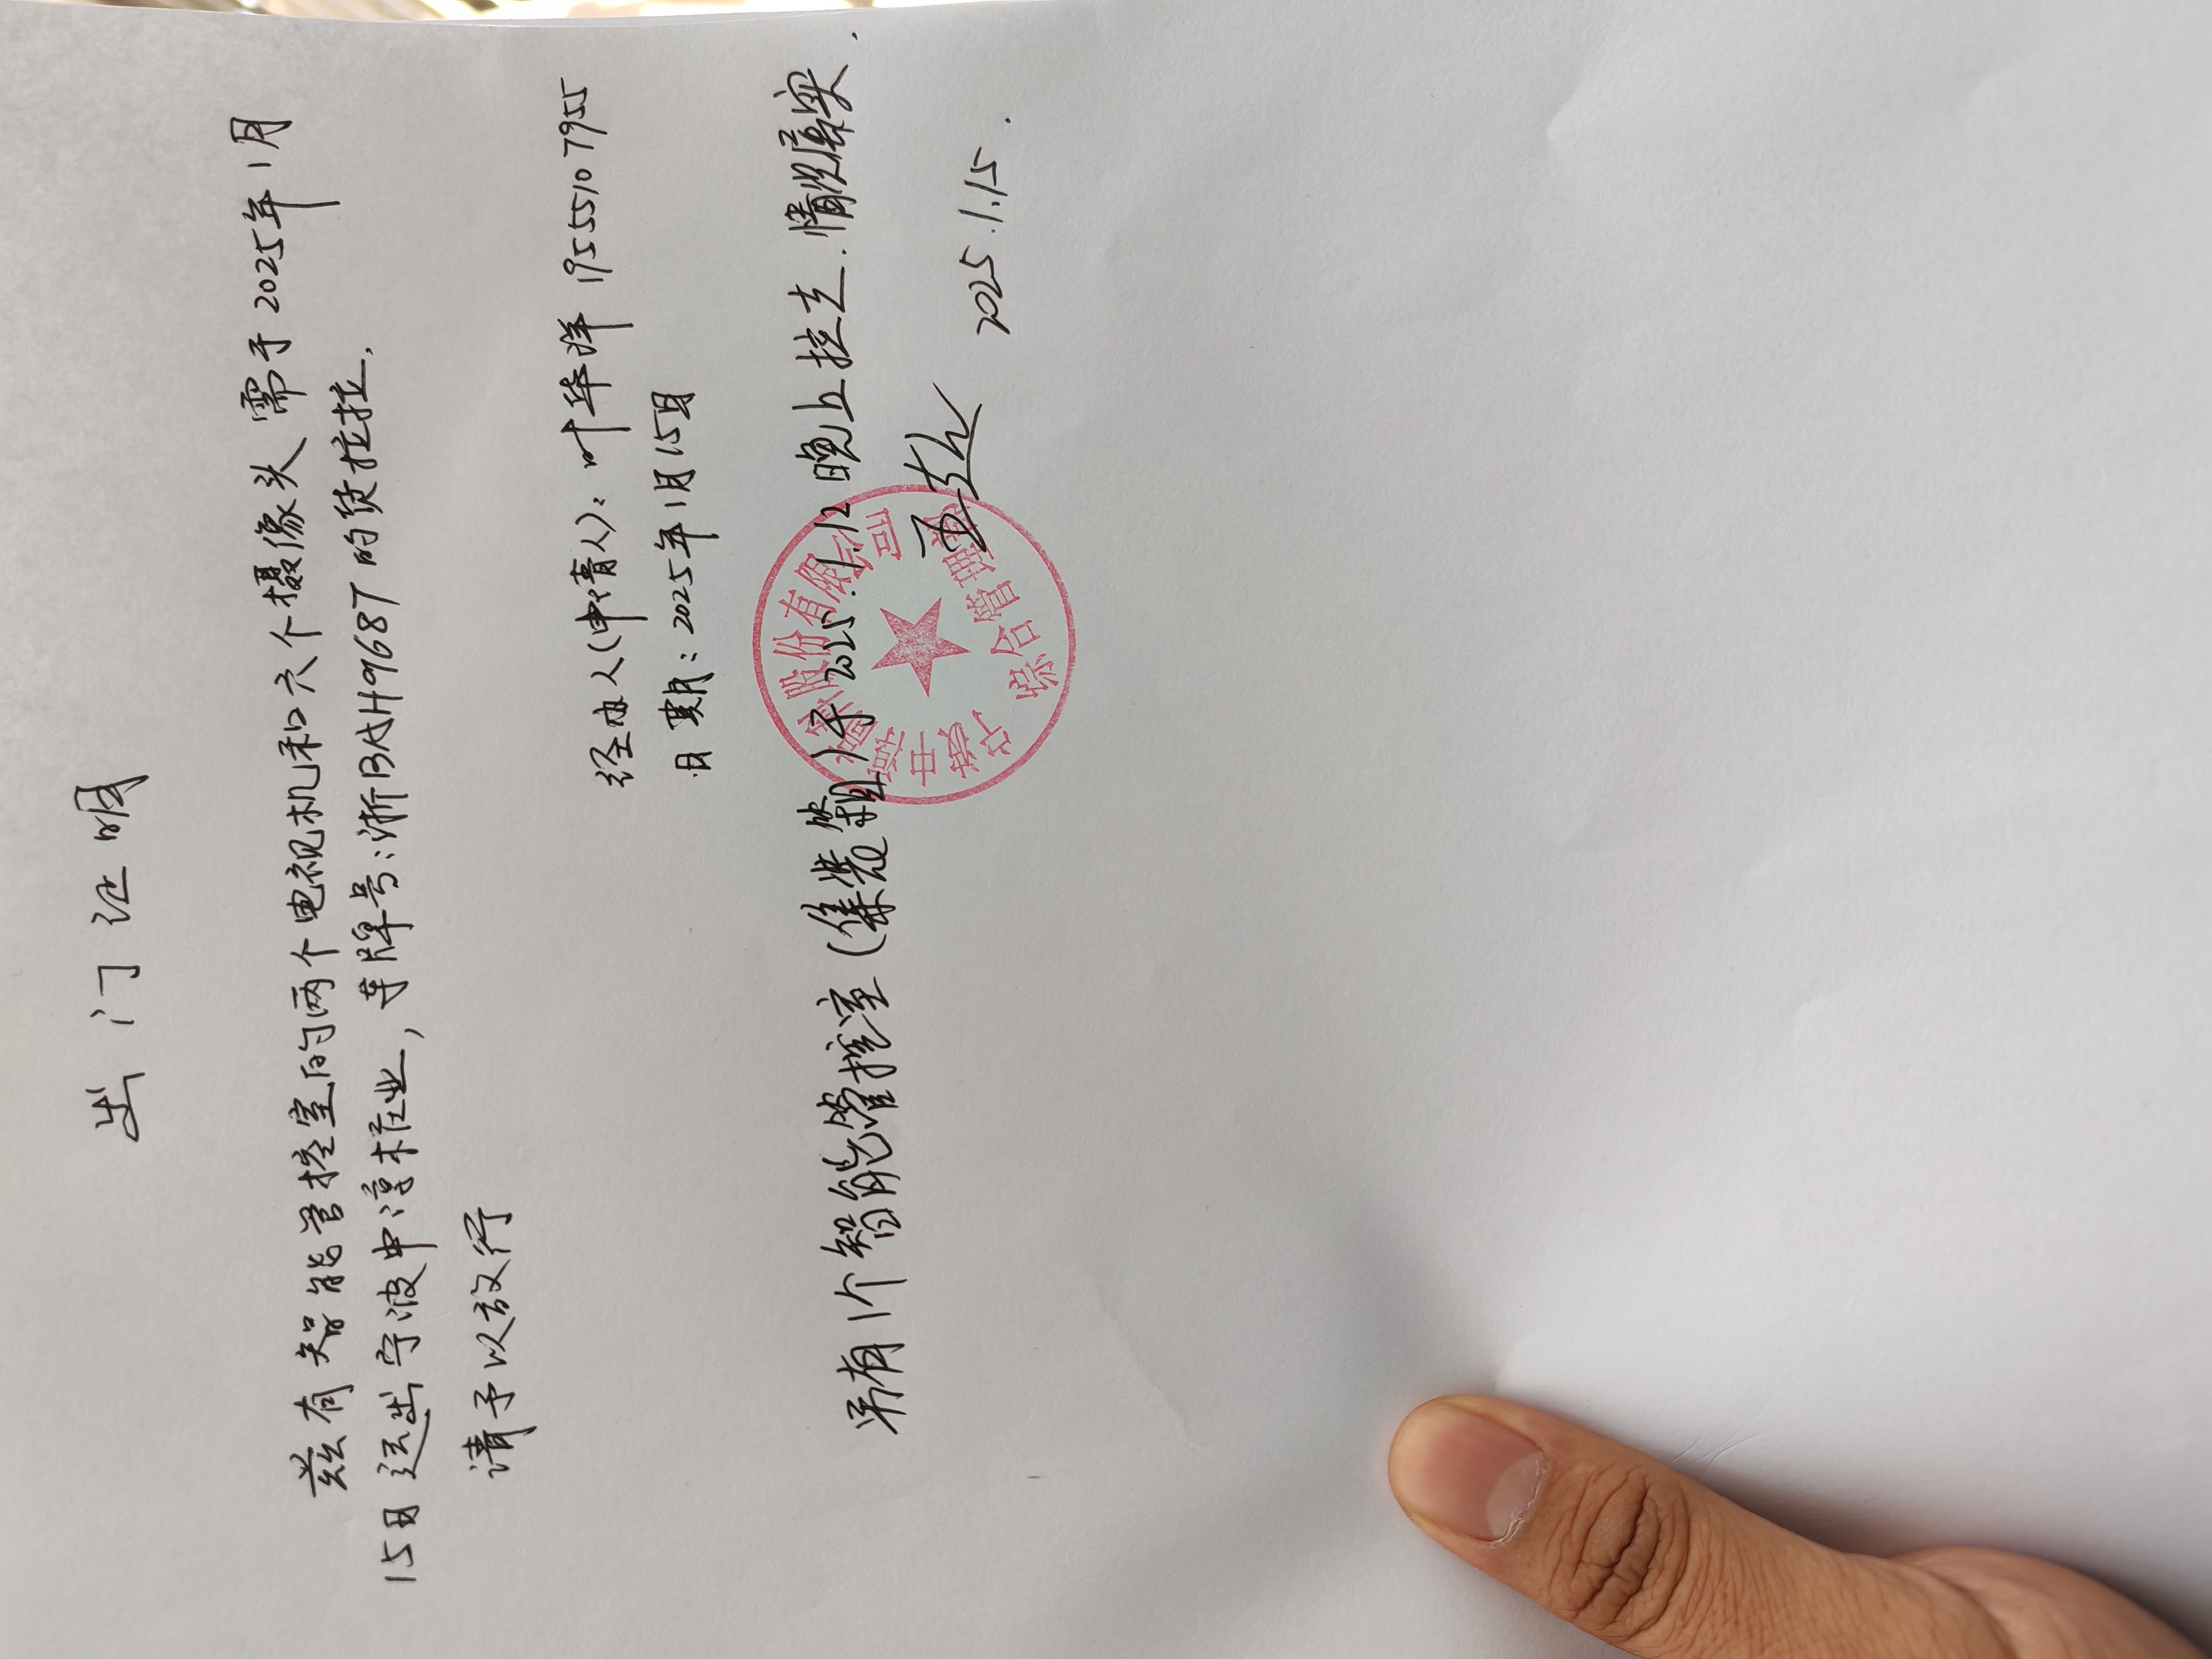 出门证明
兹有智能管控室的两个电视机和六个摄像头需于2025年1月
15日运出宁波中淳桩业，车牌号：浙BAH9687的货拉拉.
请予以放行
经办人(申请人)：叶华洋 19555107955
日期：2025年1月15日
另有1个智能管控室(集装箱)于2025.1.12晚上拉走.情况属实.
2025.1.15.
宁波中淳高科股份有限公司
综合管理部